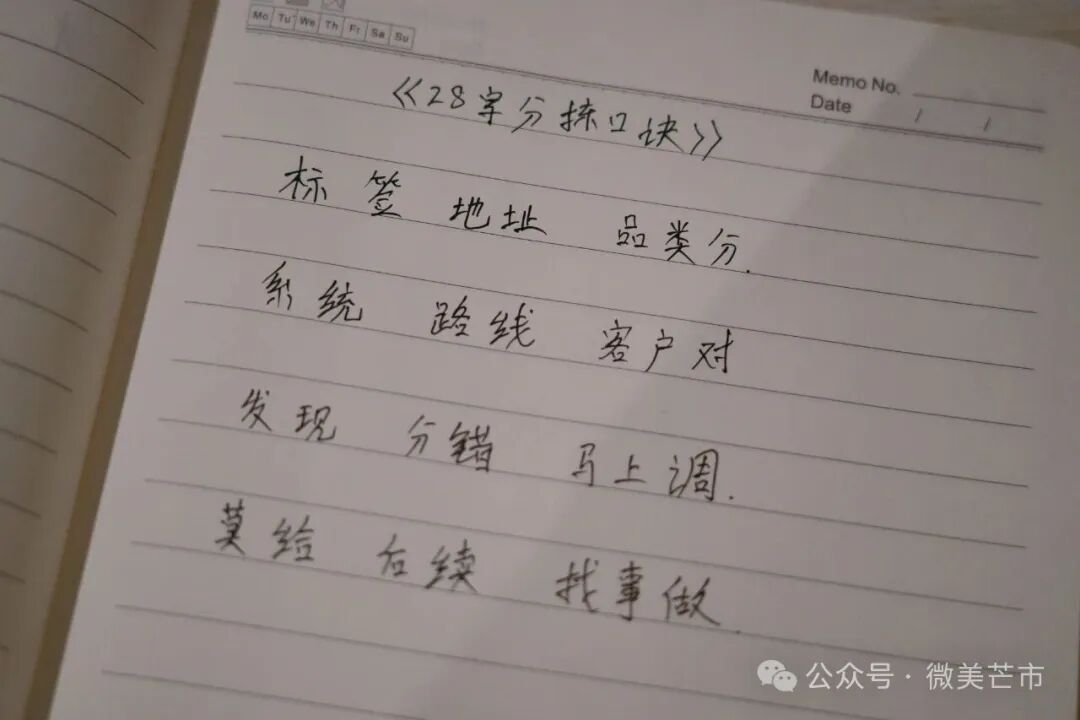 Mo Tu We Th Fr Sa Su
Memo No.
Date / /
《28字分拣口诀》
标签 地址 品类分.
系统 路线 客户对
发现 分错 马上调.
莫给 后续 找事做.
公众号·微美芒市